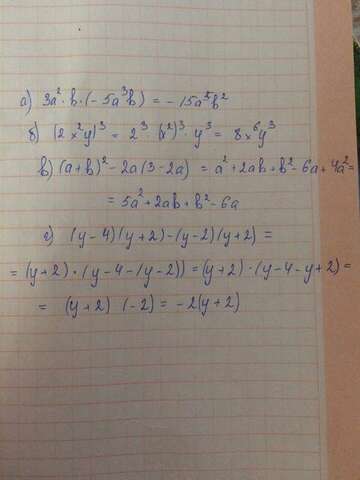 а) 3a²·b·(-5a³b) = -15a⁵b²
б) (2x²y)³ = 2³·(x²)³·y³ = 8x⁶y³
в) (a+b)² - 2a(3-2a) = a²+2ab+b²-6a+4a² =
= 5a²+2ab+b²-6a
г) (y-4)(y+2)-(y-2)(y+2) =
= (y+2)·(y-4-(y-2)) = (y+2)·(y-4-y+2) =
= (y+2) (-2) = -2(y+2)